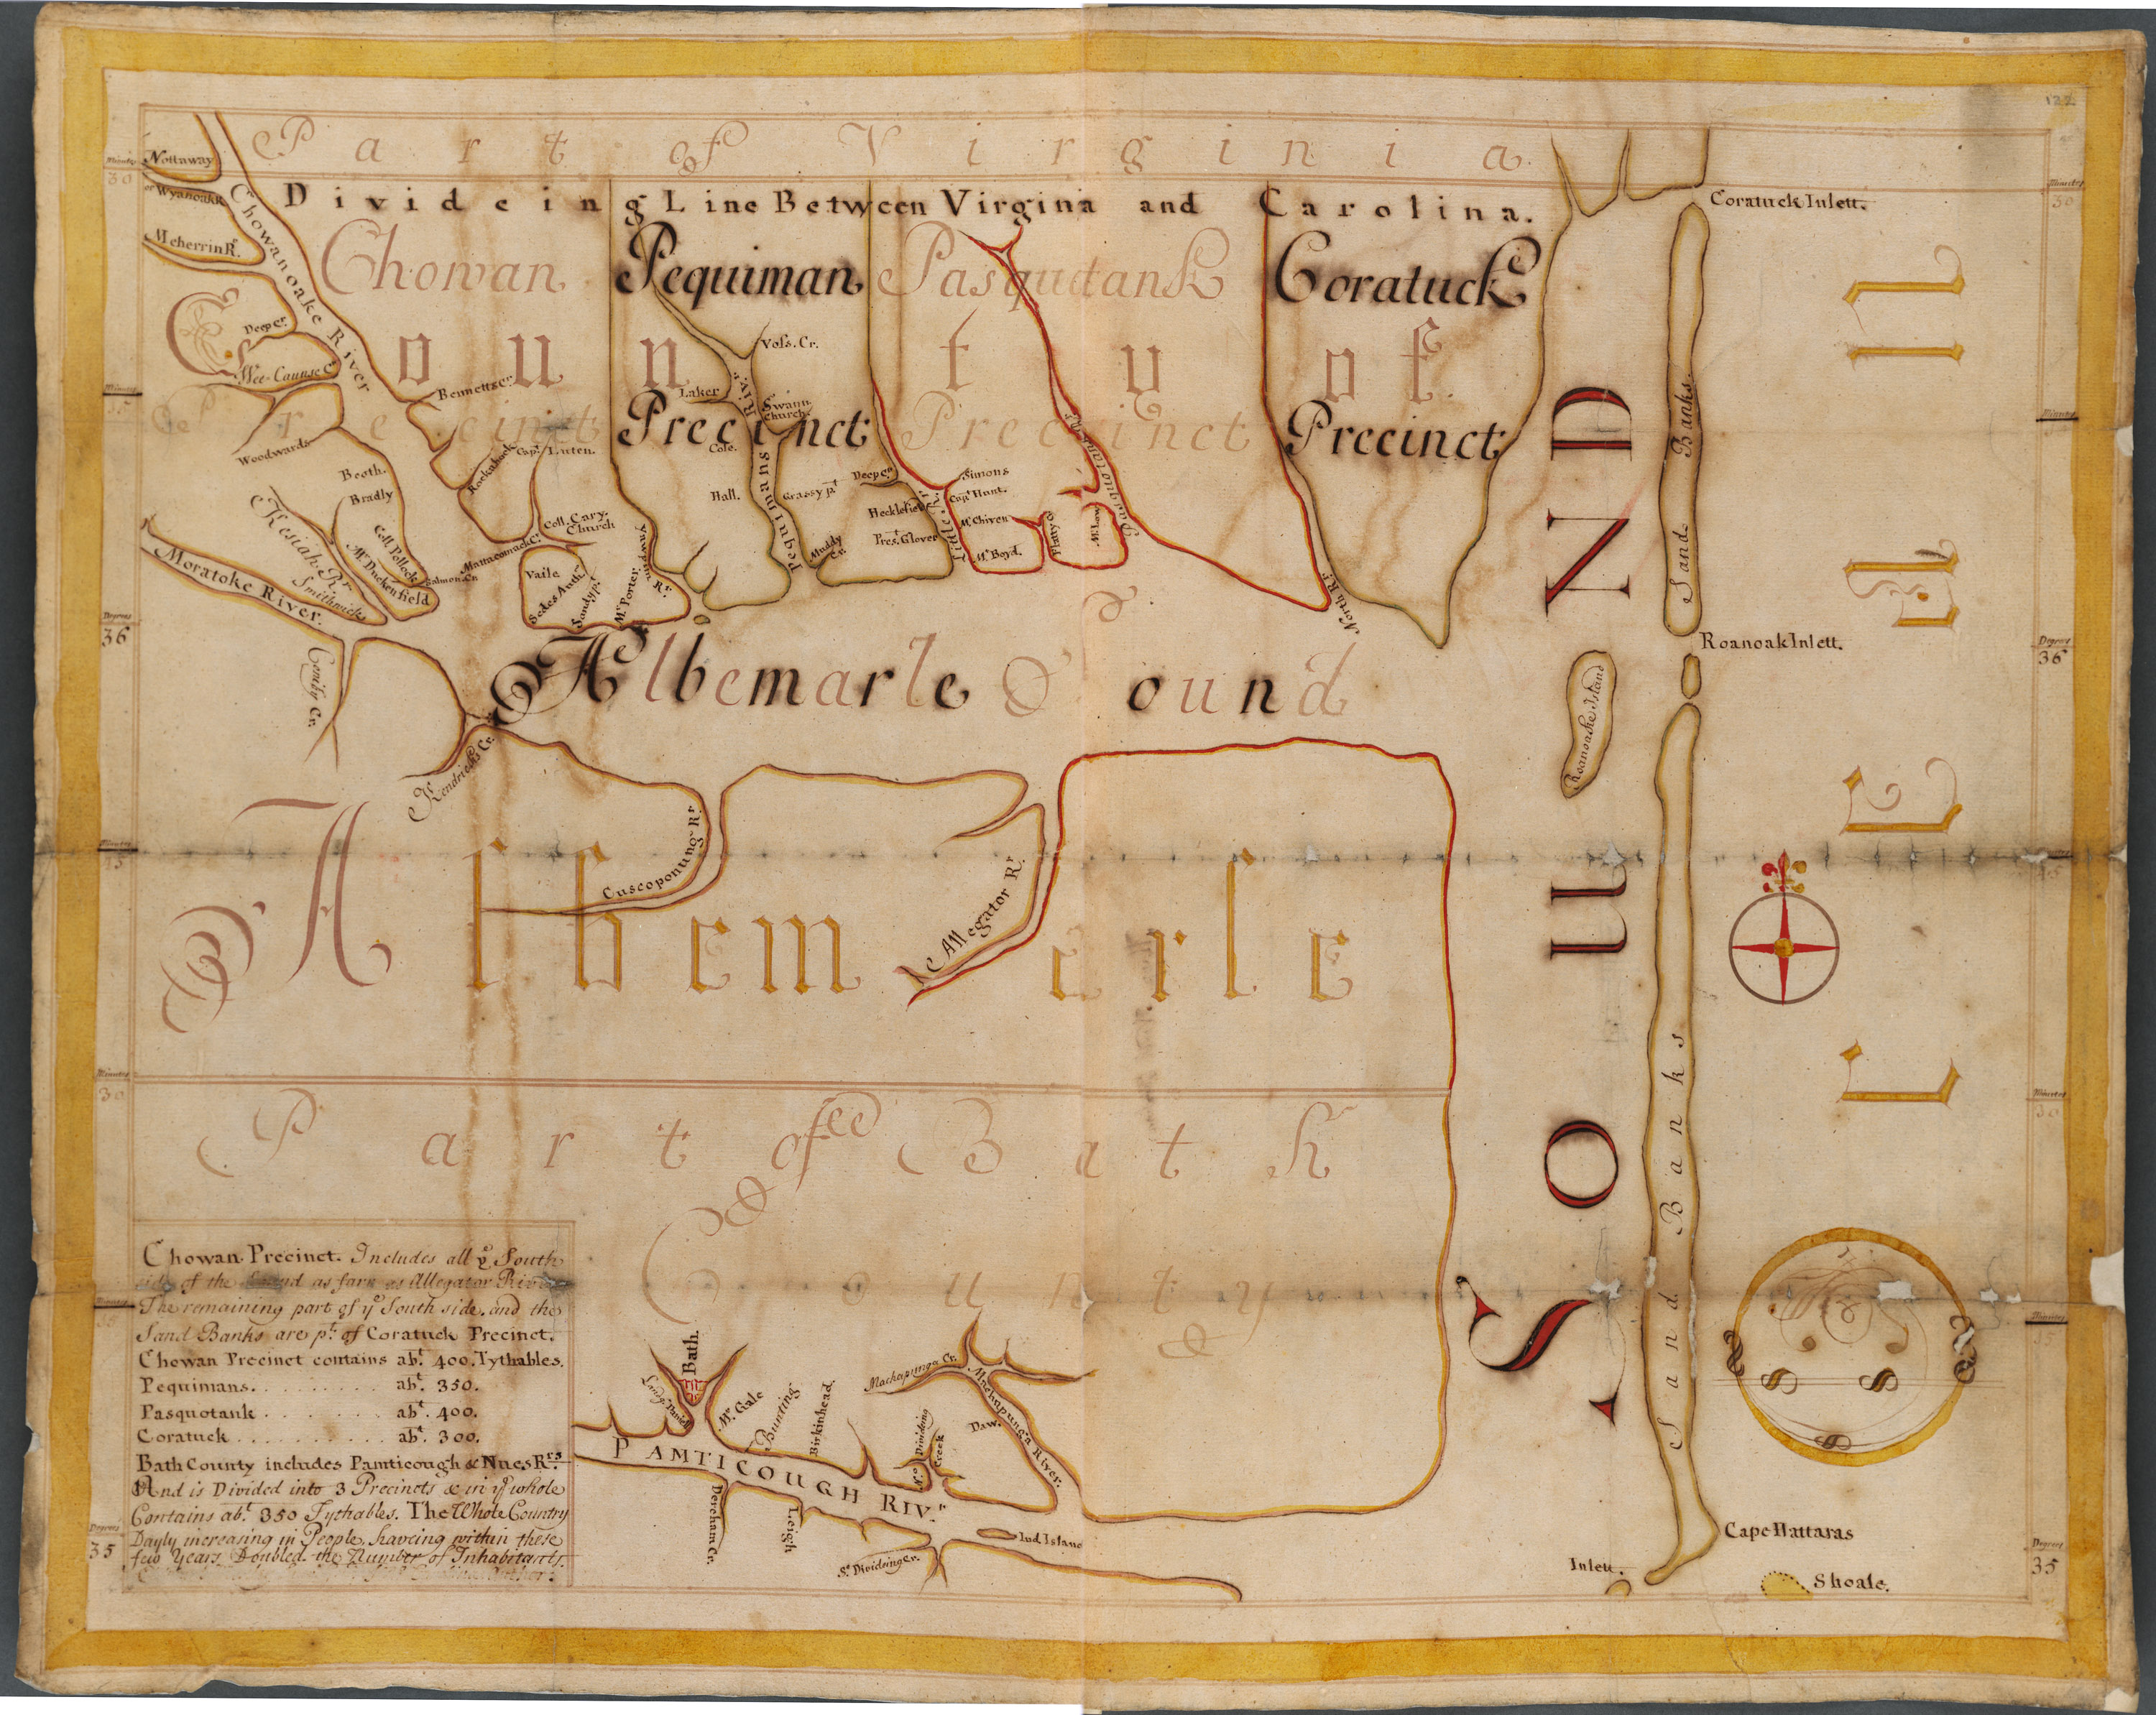 122
Part of Virginia
Minutes
30
Minutes
30
Divideing Line Between Virginia and Carolina.
Nottaway
or Wyanoake
Mcherrin R.
Chowanoake River
Chowan
Precinct
Pequiman
Precinct
Pasquetank
Precinct
Coratuck
Precinct
County of
Albemarle
Deep Cr.
Wee-Caunse C
Bennetts cr
Woodwards
Beeth.
Bradly
Coll. Pollock
Mr. Duckenfield
Salmon Cr
Kesiah Rr.
Smithwick
Moratoke River.
Comity Cr.
Kendricks Cr.
Rockahock
Capt. Luten.
Coll. Cary.
Church
Mattacomack Cr.
Vaile
Sedes Auth.r
Sandy pt
Mr. Porter
Yawpim Rr.
Voss. Cr.
Laker
Swann
Church
Cole.
Hall.
Pequimans Riv.r
Grassy pt
Deep Cr
Muddy
Cr.
Hecklefield
Pres.t Glover
Little Rr.
Simons
Cap.t Hunt.
Mr. Chiven
Mr. Boyd.
Flatty C
Mr. Low
Pasquotank Rr.
North Rr.
Albemarle Sound
Coratuck Inlett.
Sand Banks.
Roanoak Inlett.
Roanoake Island
Degrees
36
Degrees
36
SOUND
Cuscoponung Rr.
Allegator Rr.
Minutes
30
Minutes
30
Part of ye Bath
County
Sand Banks
Bath.
Landg. Daniel
Mr. Gale
Bunting
Birkinhead.
Machapunga Cr.
Machapunga River.
Daw.
No. Divideing
Creek
PAMTICOUGH RIV.r
Dereham Cr.
Leigh
So. Divideing Cr.
Ind. Island
Cape Hattaras
Inlett.
Shoale.
Degrees
35
Degrees
35
Chowan Precinct. Includes all ye South
side of the Sound as farr as Allegator River
The remaining part of ye South side. and the
Sand Banks are pt. of Coratuck Precinct.
Chowan Precinct contains abt. 400. Tythables.
Pequimans. . . . . . . . . . abt. 350.
Pasquotank . . . . . . . . abt. 400.
Coratuck . . . . . . . . . . abt. 300.
Bath County includes Pamticough & Nues Rrs.
And is Divided into 3 Precincts & in ye whole
Contains abt. 350 Tythables. The Whole Country
Dayly increasing in People, haveing within these
few Years Doubled the Number of Inhabitants.